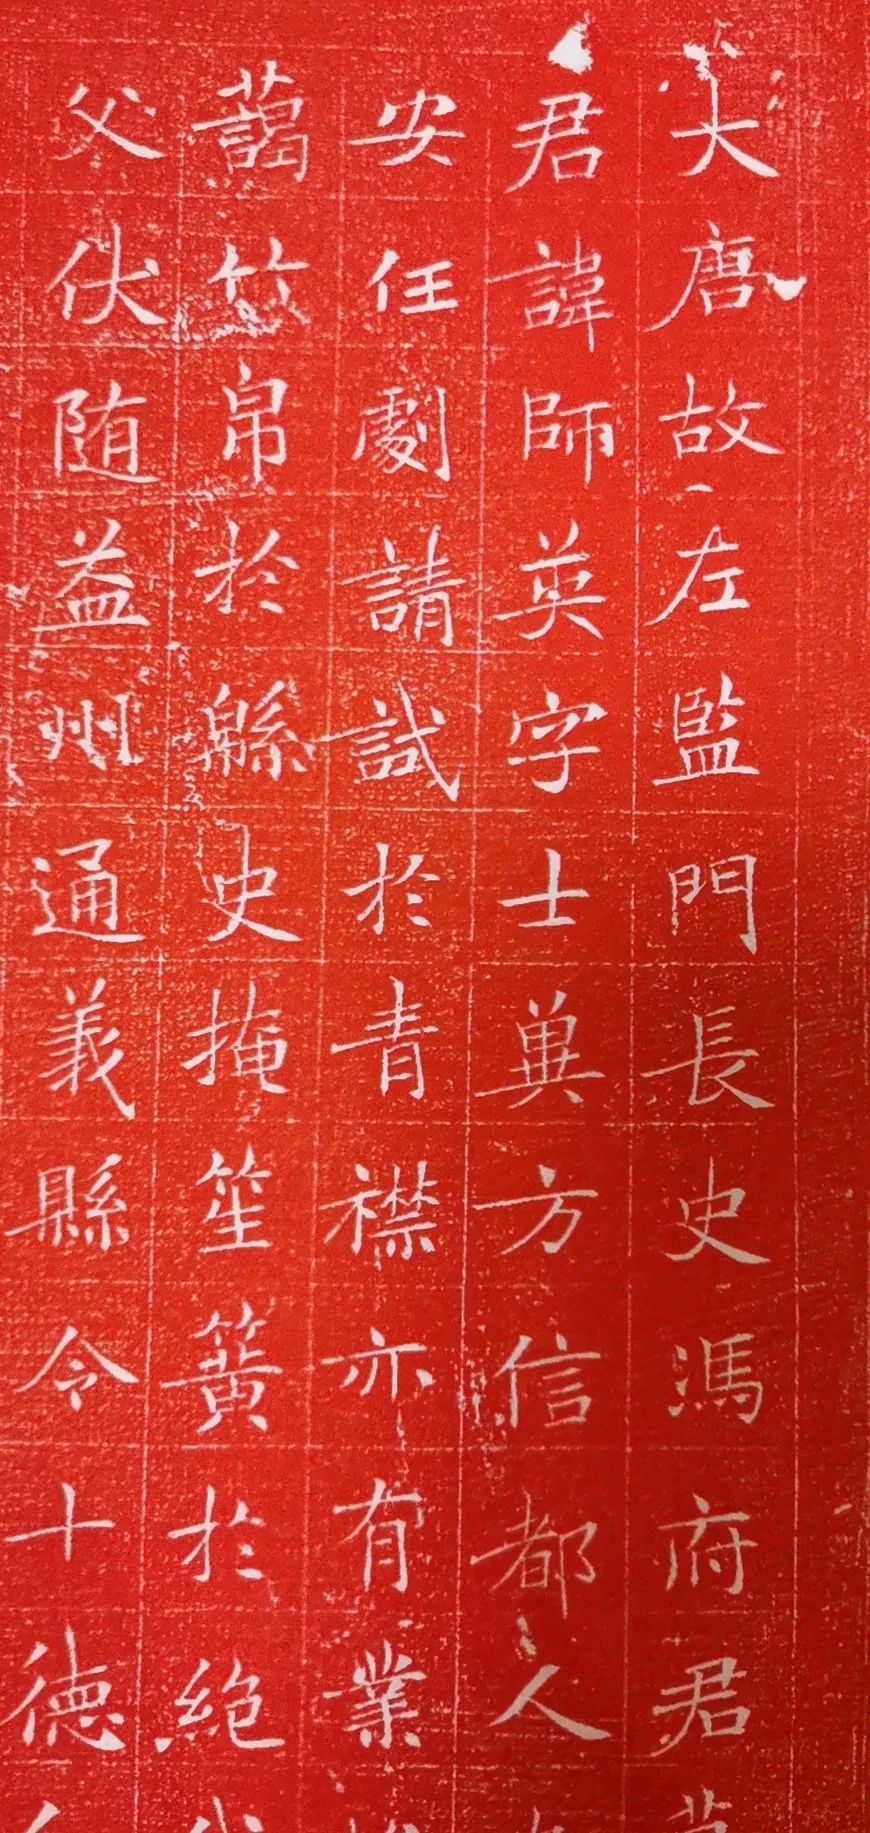 大唐故左監門長史馮府君
君諱師英字士兼方信都人
安任劇請試於青襟亦有業
藹竹帛於緜史掩笙簧於絶
父伏随益州通義縣令十德